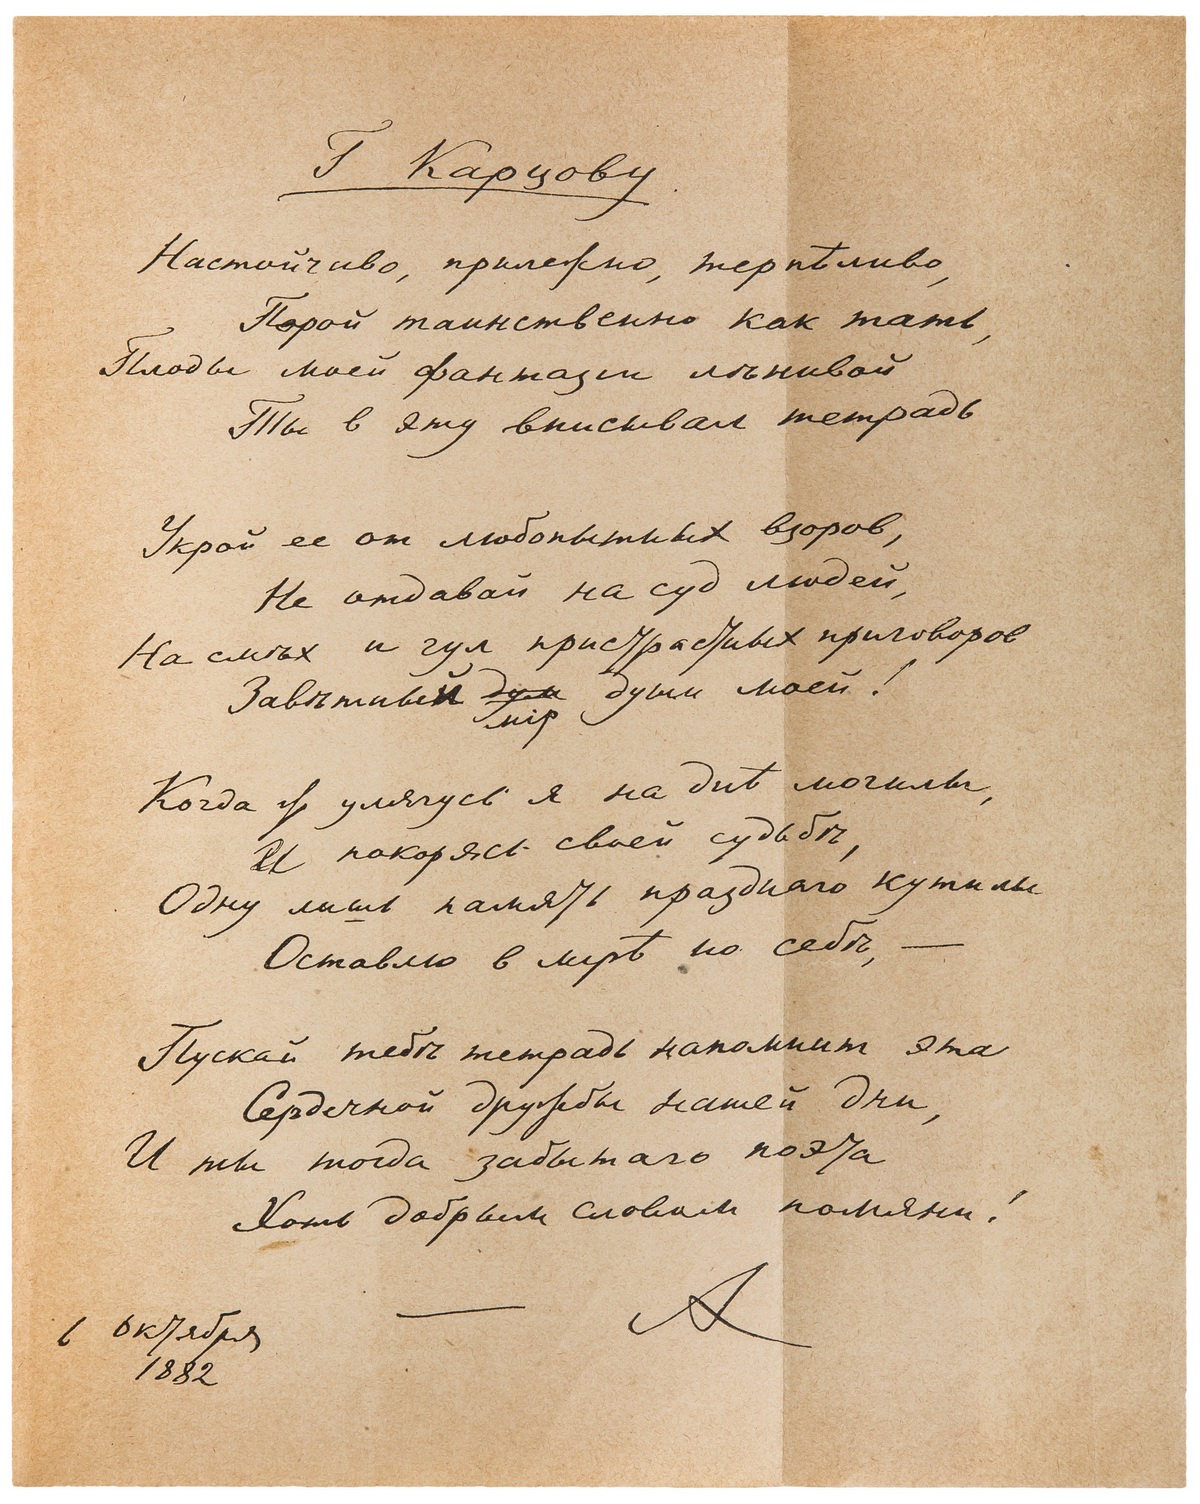 Г Карцову.
Настойчиво, прилежно, терпѣливо,
Порой таинственно как тать,
Плоды моей фантазии лѣнивой
Ты в эту вписывал тетрадь
Укрой ее от любопытных взоров,
Не отдавай на суд людей,
На смѣх и гул пристрастных приговоров
Завѣтный дум души моей!
мір
Когда ж улягусь я на днѣ могилы,
И покорясь своей судьбѣ,
Одну лишь память празднаго кутилы
Оставлю в мірѣ по себѣ, —
Пускай тебѣ тетрадь напомнит эта
Сердечной дружбы нашей дни,
И ты тогда забытаго поэта
Хоть добрым словом помяни!
— А
6 октября
1882